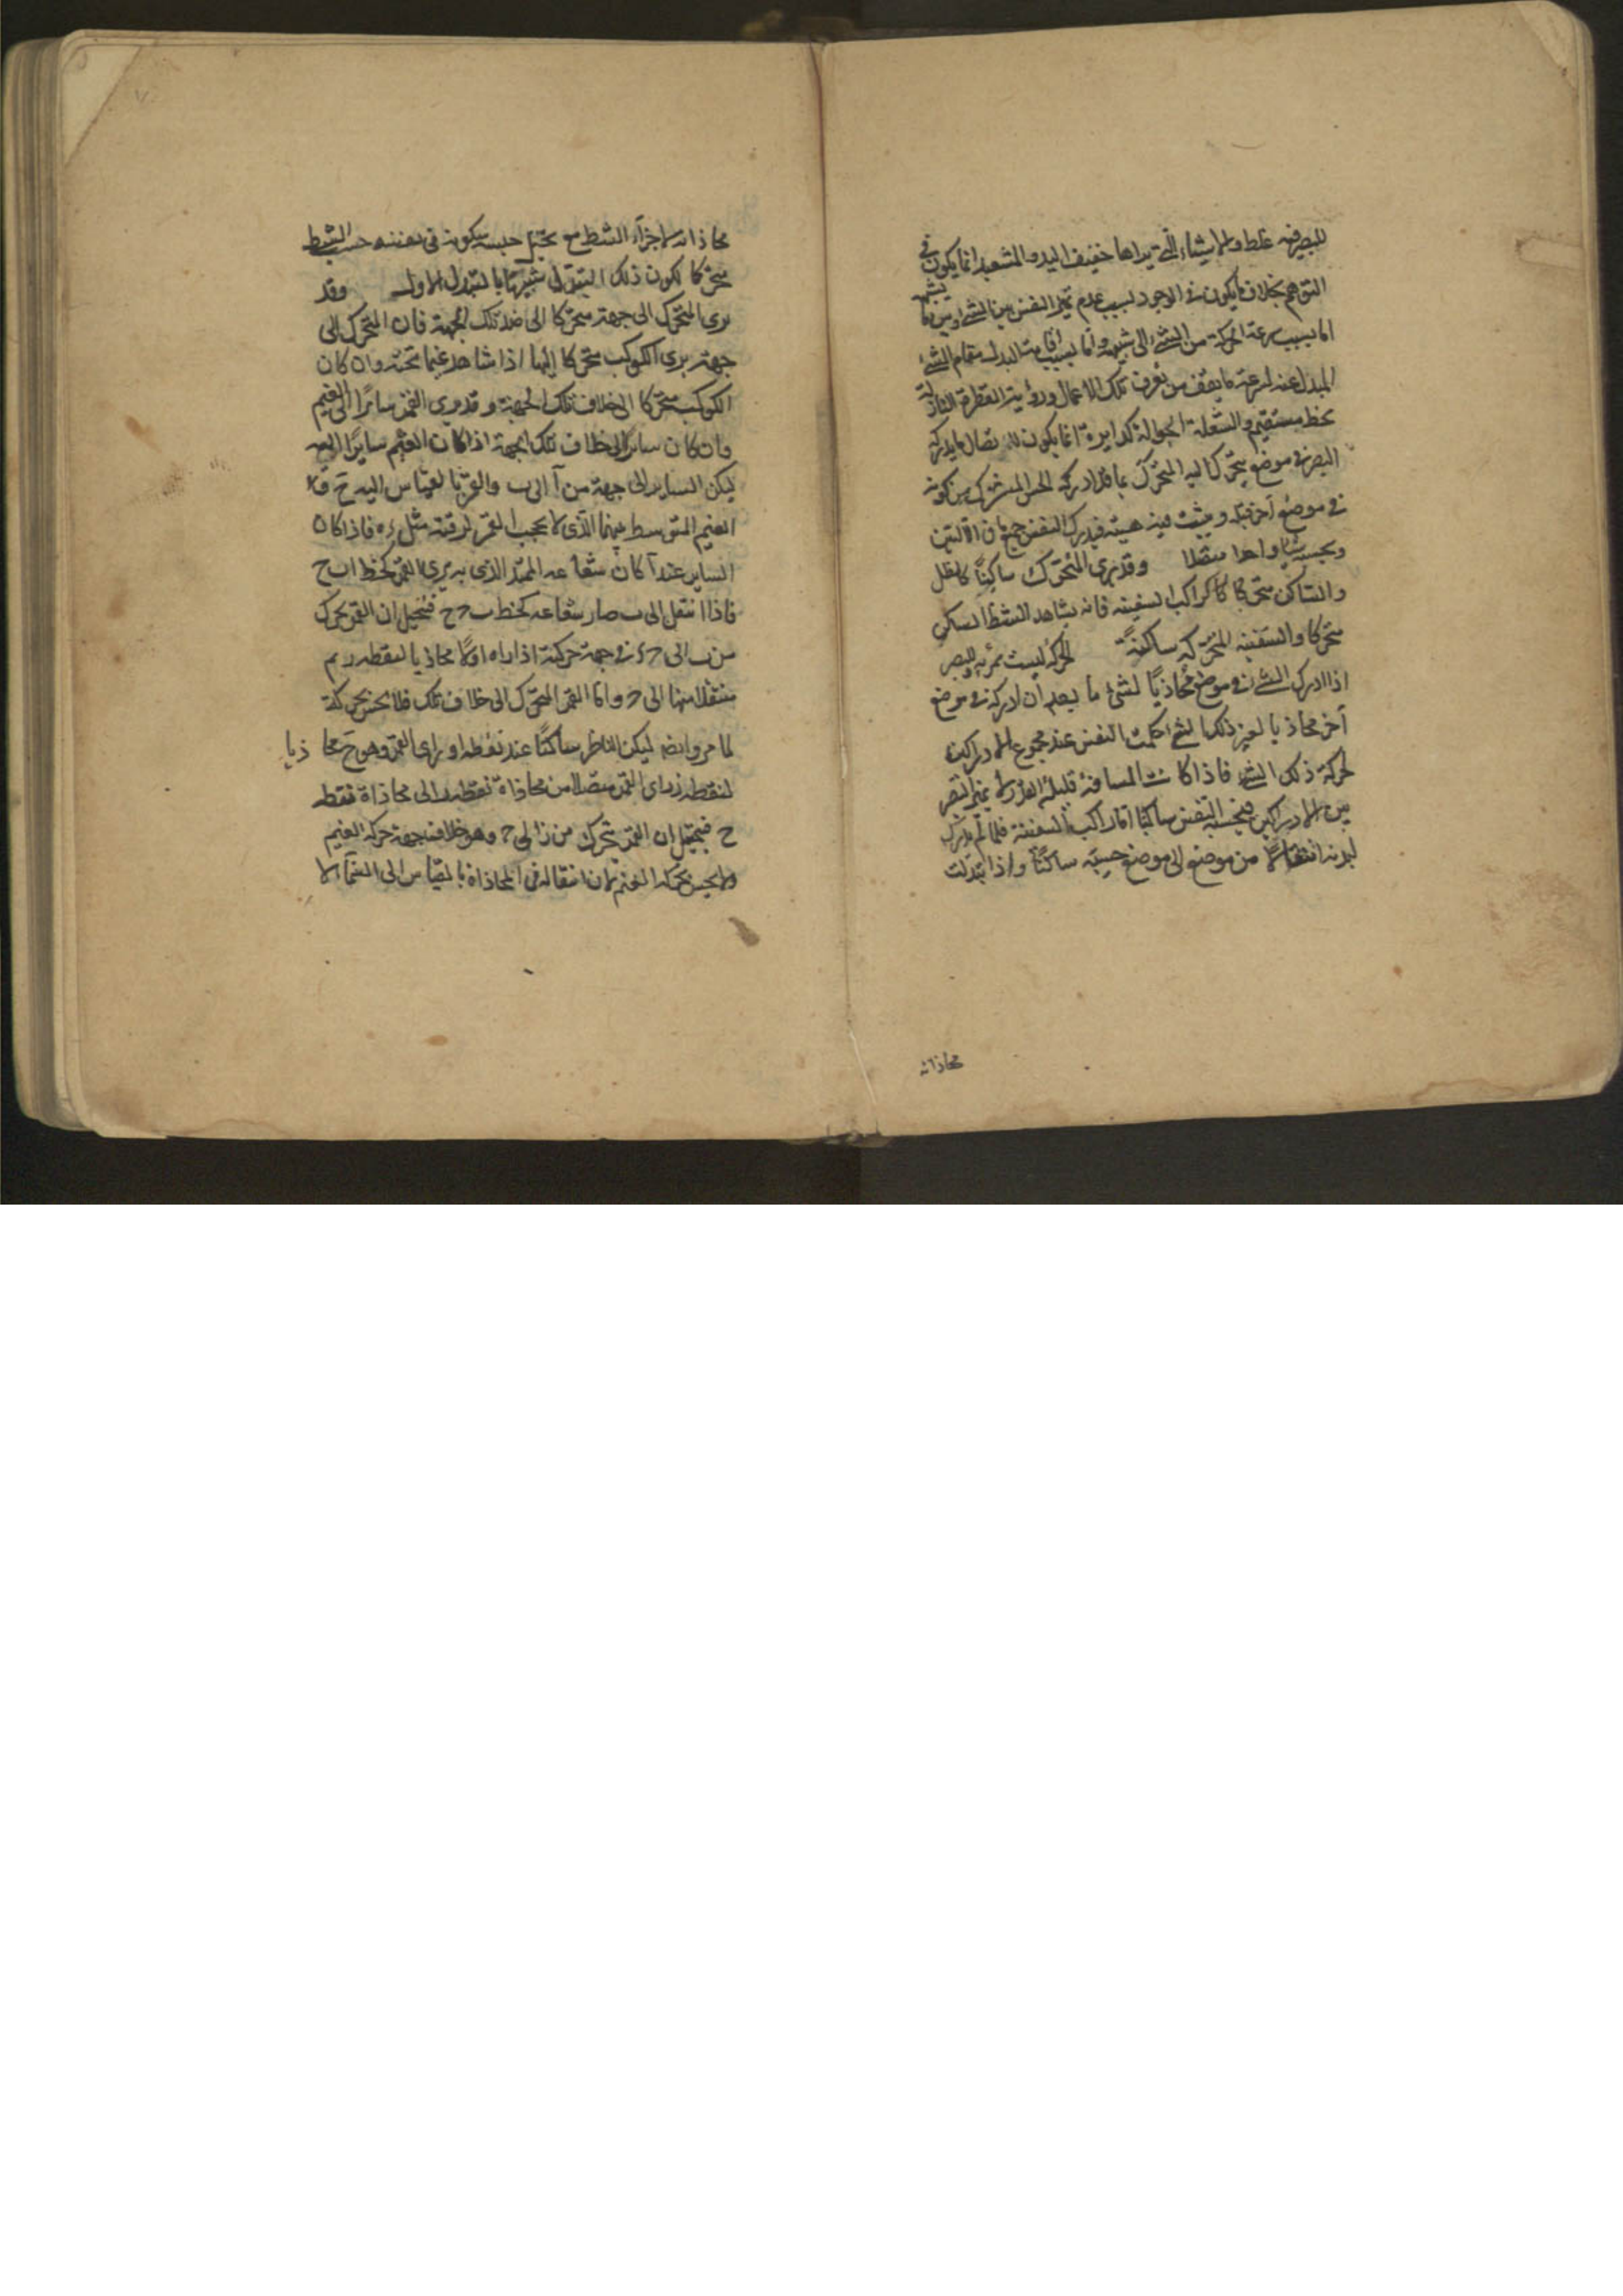 للبصر فيه غلط والاشياء التي يراها خفيف اليد والمشعبد انما يكون في
التوهم بخلاف ما يكون في الوجود لسبب عدم تميز النفس بين الشئ وبين ما يشبهه
اما بسبب سرعة الحركة من الشئ الى شبهه واما بسبب اقامة البدل مقام الشئ
المبدل عنه لسرعة ما يقف من يعرف تلك الاعمال ورؤية القطرة النازلة
كخط مستقيم والشعلة الجوالة كدايرة انما يكون لاتصال ما يدركه
البصر في موضع يتحرك اليه المتحرك بما قد ادركه الحس المشترك من كونه
في موضع آخر قبله ويثبت فيه هيئته فيدرك النفس جميع ما في الالتين
ويحسبه شيا واحدا متصلا وقد يرى المتحرك ساكنًا كالظل
والساكن متحركا كراكب السفينة فانه يشاهد الشط الساكن
متحركا والسفينة المتحركة ساكنةً الحركة ليست بمرئية والبصر
اذا ادرك الشئ في موضع محاذيًا لشئ ما بعد ان ادركه في موضع
آخر محاذيا لغير ذلك الشئ حكمت النفس عند مجموع الادراكين
لحركة ذلك الشئ فاذا كانت المسافة قليلة القدر لم يميز البصر
بين الادراكين فيحسبه النفس ساكنًا اما راكب السفينة فلما لم يدرك
لبدنه انتقالاً من موضع الى موضع حسبه ساكنًا واذا تبدلت
محاذاته
محاذاته لاجزآء الشط مع تخيل حسبه سكونه في نفسه حسب الشط
متحركا لكون ذلك التبدل شبيها بالتبدل الاول وقد
يرى المتحرك الى جهة متحركا الى ضد تلك الجهة فان المتحرك الى
جهة يرى الكوكب متحركا اليها اذا شاهد غيما تحته وان كان
الكوكب متحركا الى خلاف تلك الجهة وقد يرى القمر سائرًا الى الغيم
وان كان سائرًا الى خلاف تلك الجهة اذا كان الغيم سايرًا اليه
ليكن الساير الى جهة من آ الى ب والقمر بالقياس اليه ح
الغيم المتوسط بينهما الذي لا يحجب القمر لرقته مثل ء ه فاذا كان
الساير عند آ كان شعاعه الممتد الذي به يرى القمر كخط ا ح
فاذا انتقل الى ب صار شعاعه كخط ب ح فتخيل ان القمر تحرك
من الى في جهة حركته اذا راه اولا محاذيا لنقطة ثم
منتقلا منها الى واما القمر المتحرك الى خلاف تلك فلا يحس بحركته
لما مر وايضا ليكن الناظر ساكنًا عند نقطة ا وراى القمر وهو ح محاذيا
لنقطة ز راى القمر متصلا من محاذاة نقطة الى محاذاة نقطة
ح فيتخيل ان القمر تحرك من ز الى ح وهو خلاف جهة حركة الغيم
ولا يحس بحركة الغيم لان انتقاله في المحاذاة بالقياس الى السمآء لا